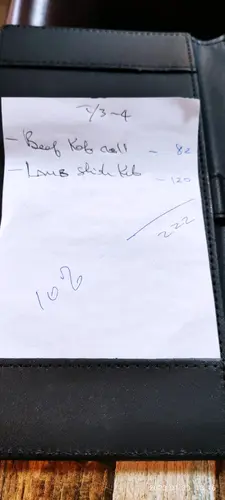 T/3-4
- Beef Kob roll - 82
- Lamb shish Keb - 120
222
10%